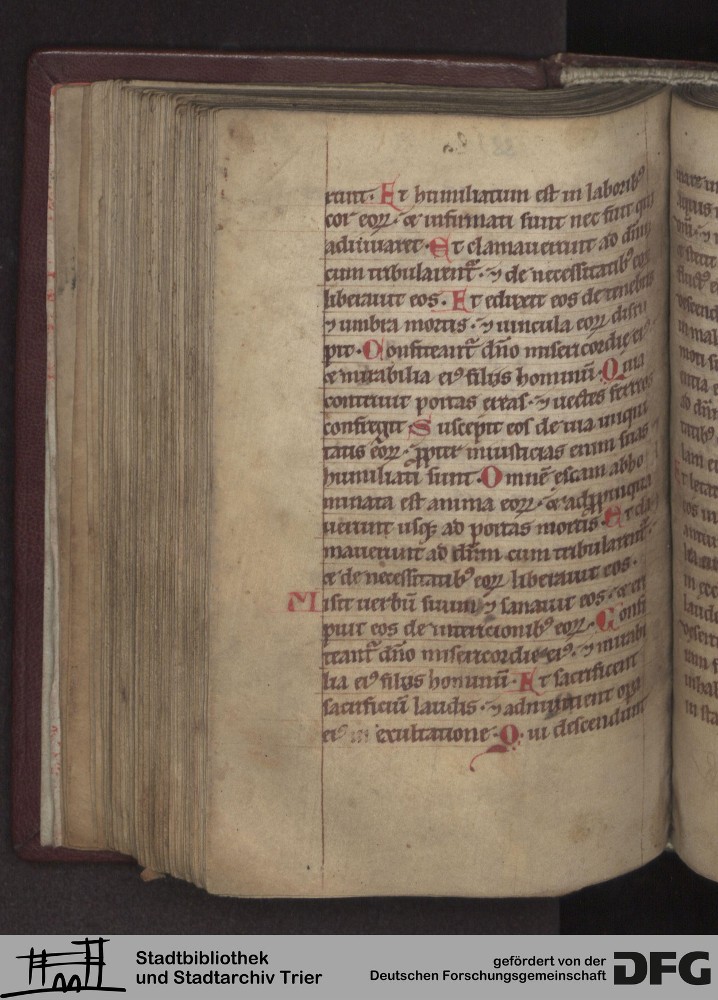 runt. Et humiliatum est in laborib9
cor eoꝝ. & infirmati sunt nec fuit qui
adiuuaret. Et clamauerunt ad dñm
cum tribularent᷑. ⁊ de necessitatib9 eoꝝ
liberauit eos. Et eduxit eos de tenebris
⁊ umbra mortis. ⁊ uincula eoꝝ disru
pit. Confiteant᷑ dño misericordie ei9
& mirabilia ei9 filiis hominū. Quia
contriuit portas ereas. ⁊ uectes ferreos
confregit. Suscepit eos de uia iniqui
tatis eoꝝ. ꝓpter iniusticias enim suas
humiliati sunt. Omnē escam abho
minata est anima eoꝝ. & adꝓpinqua
uerunt usq; ad portas mortis. Et cla
mauerunt ad dñm cum tribularent᷑.
& de necessitatib9 eoꝝ liberauit eos.
Misit uerbū suum ⁊ sanauit eos. & eri
puit eos de interitionib9 eoꝝ. Confi
teant᷑ dño misericordie ei9. ⁊ mirabi
lia ei9 filiis hominū. Et sacrificent
sacrificiū laudis. ⁊ adnuntient opa
ei9 in exultatione. Qui descendunt
Stadtbibliothek
und Stadtarchiv Trier
gefördert von der
Deutschen Forschungsgemeinschaft
DFG